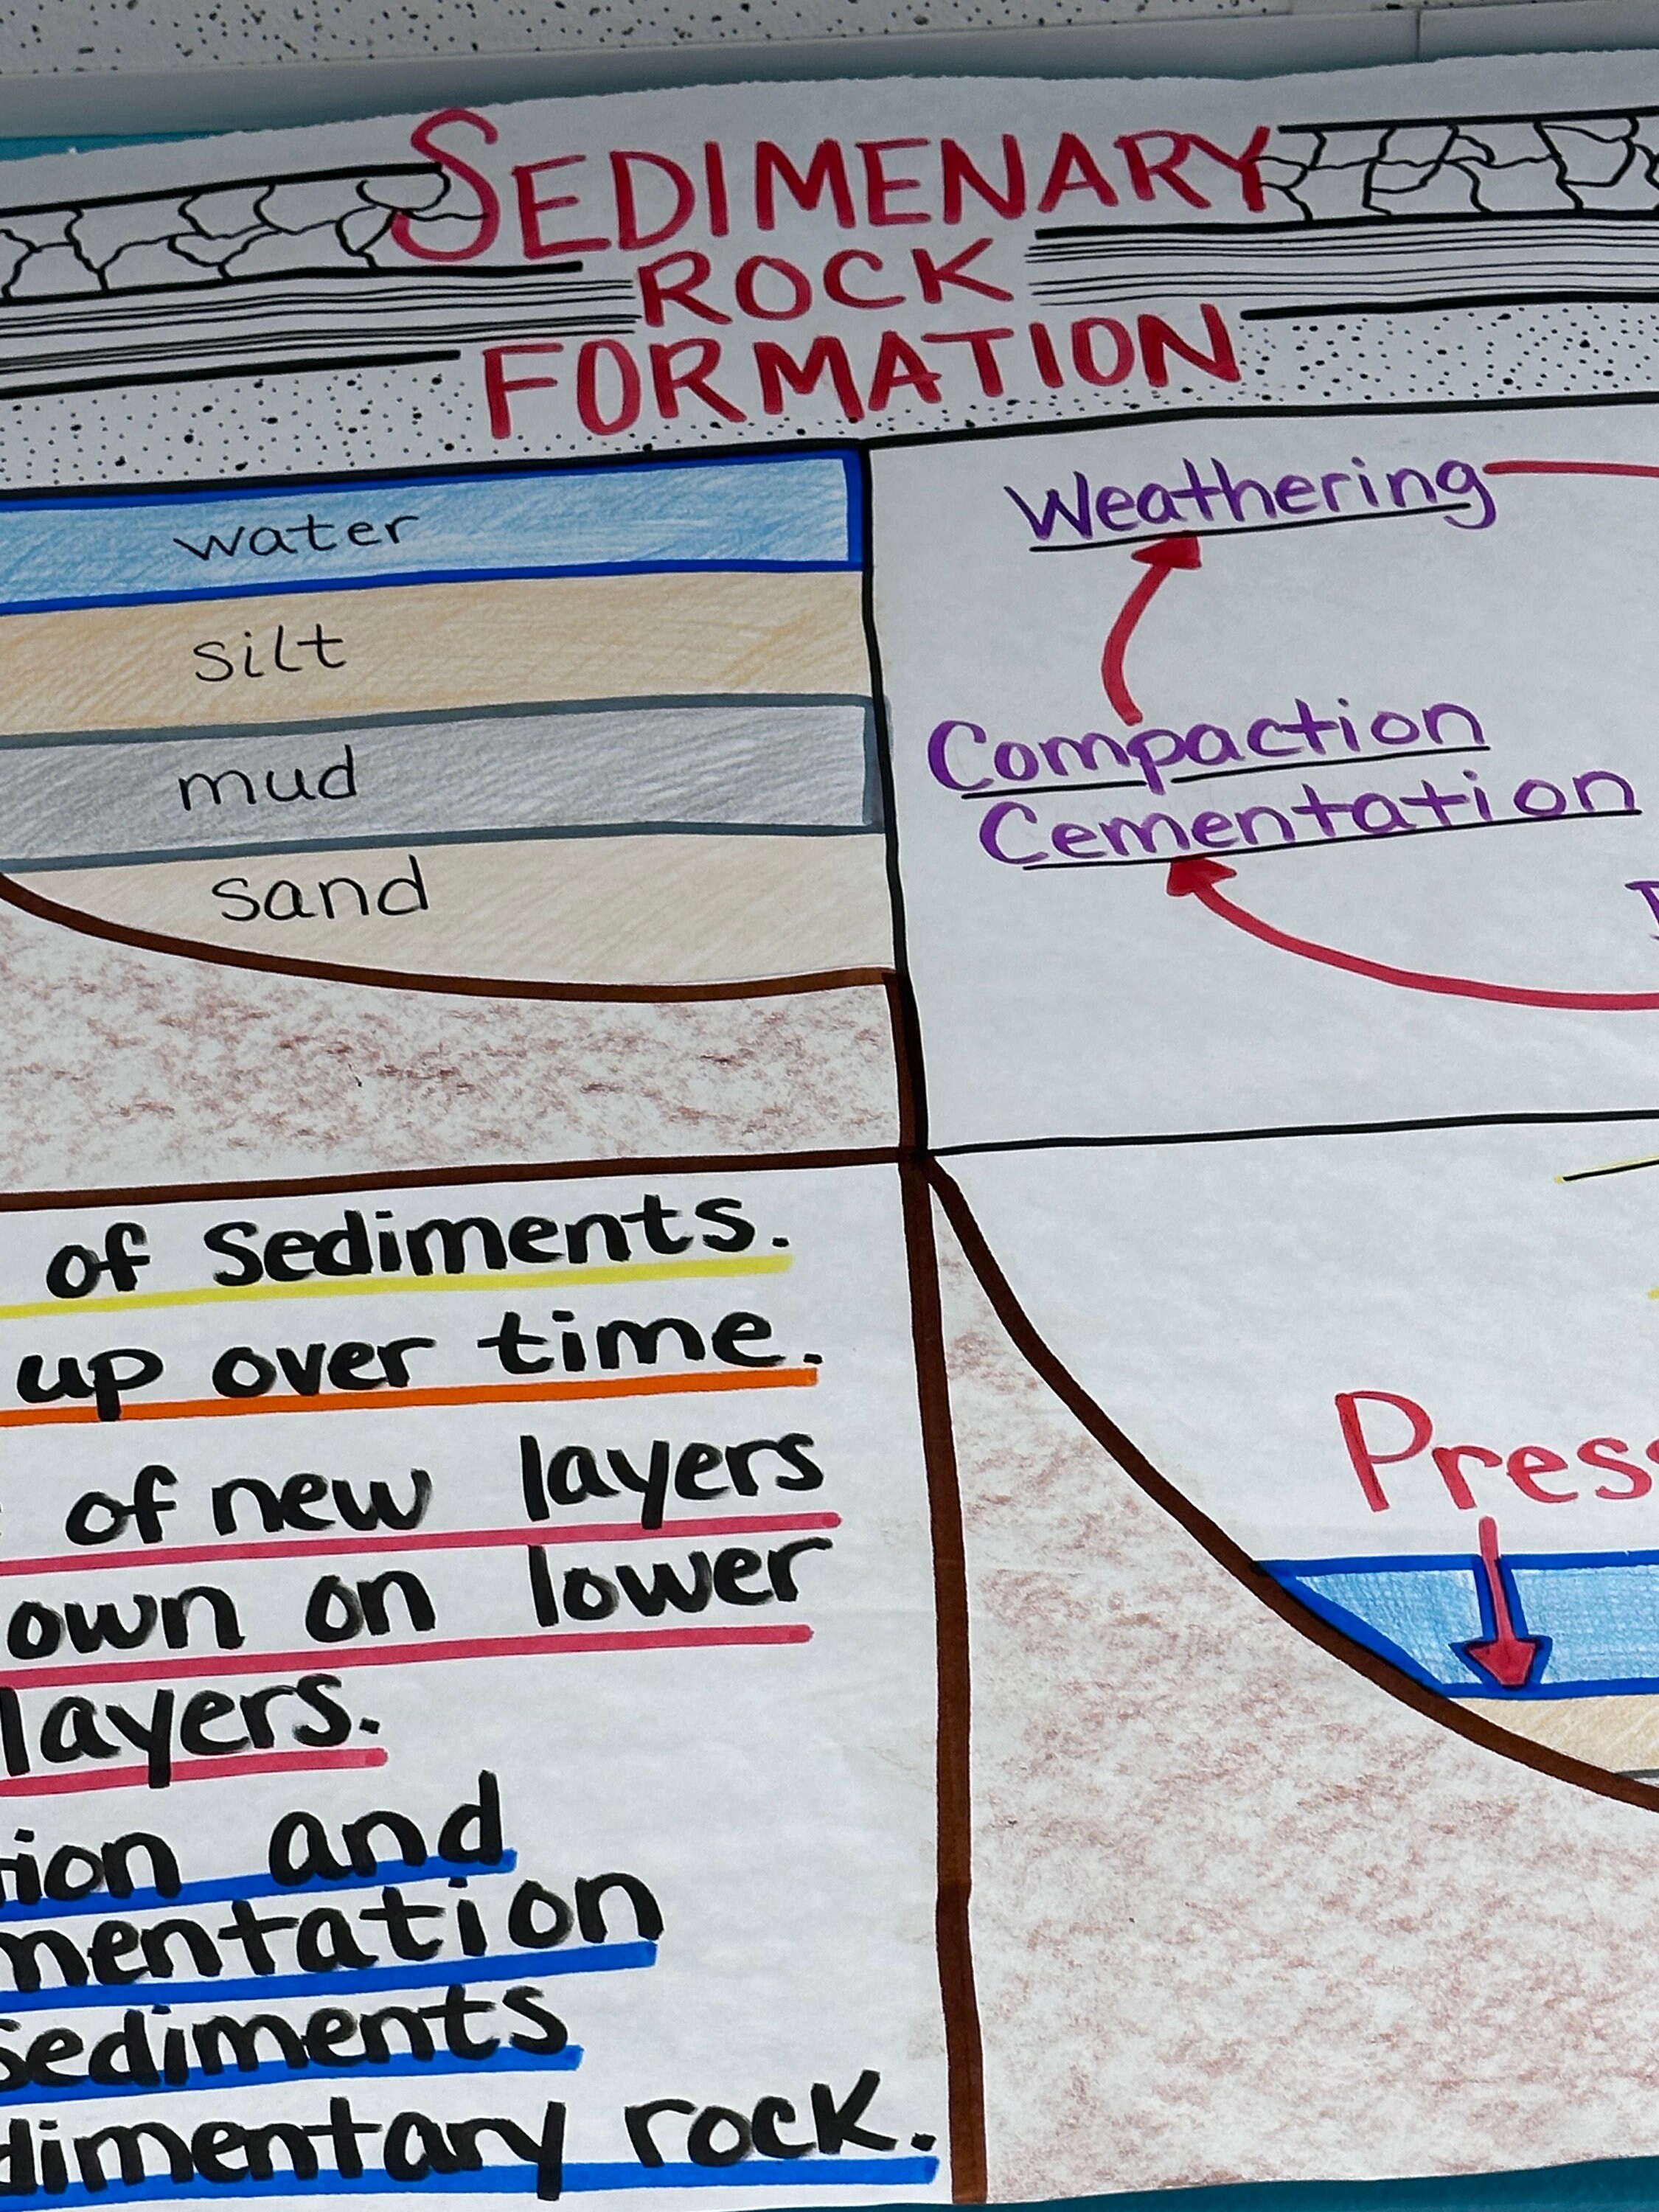 SEDIMENARY
ROCK
FORMATION
water
silt
mud
sand
Weathering
Compaction
Cementation
of Sediments.
up over time.
of new layers
own on lower
layers.
tion and
mentation
Sediments
dimentary rock.
Press